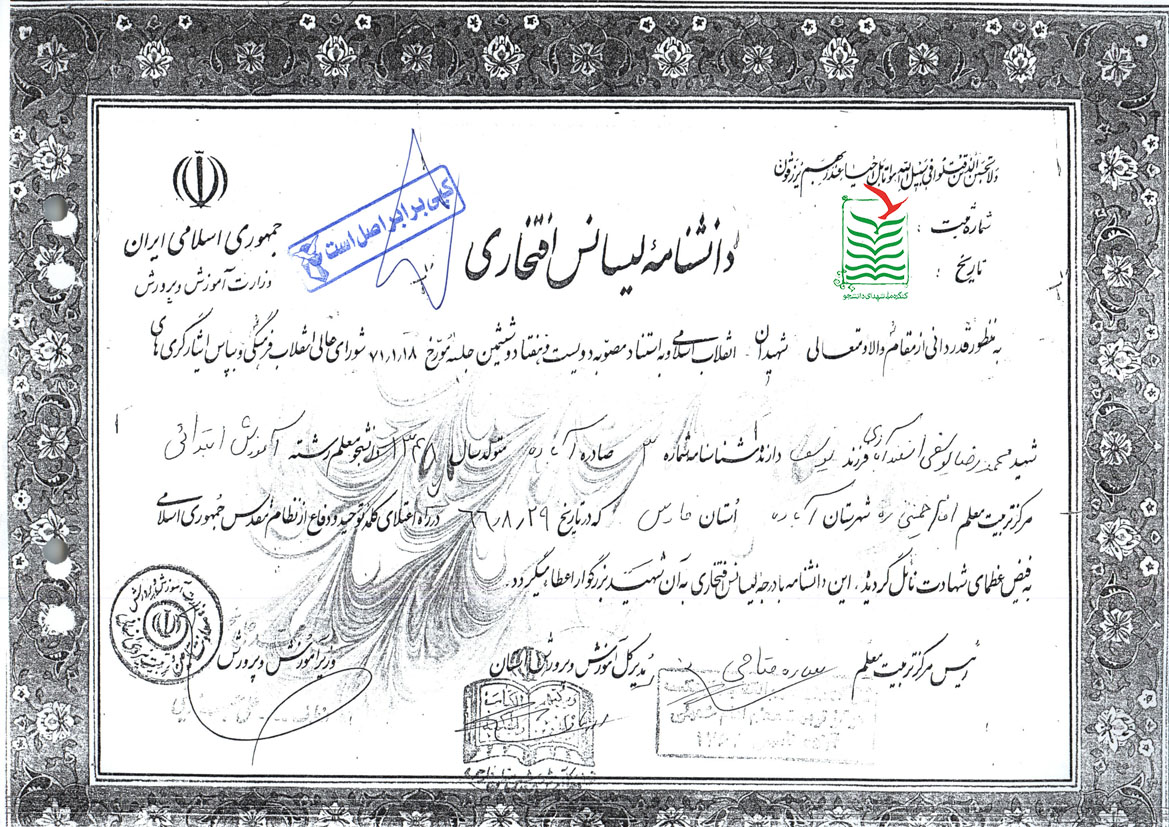 ولا تحسبن الذین قتلوا فی سبیل الله امواتا بل احیاء عند ربهم یرزقون
جمهوری اسلامی ایران
وزارت آموزش و پرورش
کپی برابر اصل است
دانشنامهٔ لیسانس افتخاری
شماره ثبت :
تاریخ :
کنگره ملی شهدای دانشجو
به منظور قدردانی از مقام والا و متعالی شهیدان انقلاب اسلامی و به استناد مصوبه دویست و هفتاد و ششمین جلسه مورخ ۷۱٫۱٫۱۸ شورای عالی انقلاب فرهنگی و بپاس ایثارگری های
شهید محمدرضا یوسفی اسفندآبادی فرزند یوسف دارنده شناسنامه شماره ۳ صادره آباده متولد سال دانشجو معلم رشته آموزش ابتدائی
مرکز تربیت معلم امام خمینی ره شهرستان آباده استان فارس که در تاریخ ۶۶٫۸٫۲۹ در راه اعتلای کلمه توحید و دفاع از نظام مقدس جمهوری اسلامی
به فیض عظمای شهادت نائل گردید . این دانشنامه با درجه لیسانس افتخاری به آن شهید بزرگوار اعطا میگردد .
رئیس مرکز تربیت معلم
مدیر کل آموزش و پرورش استان
وزیر آموزش و پرورش